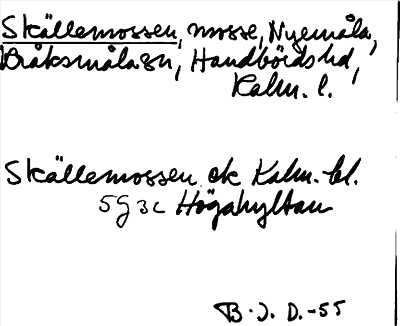 Skällemossen, mosse, Nyemåla,
Kråksmåla sn, Handbörds hd,
Kalm. l.
Skällemossen ek Kalm. bl.
5G 3c Högahyltan
B.J.D.-55